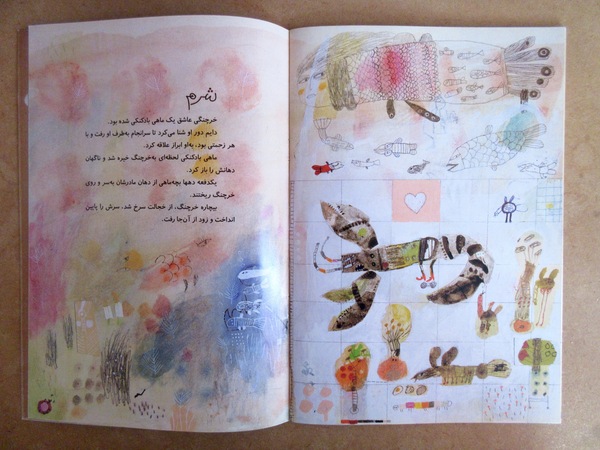 شرم
خرچنگی عاشق یک ماهی بادکنکی شده بود.
دایم دور او شنا می‌کرد تا سرانجام به‌طرف او رفت و با
هر زحمتی بود، به‌او ابراز علاقه کرد.
ماهی بادکنکی لحظه‌ای به‌خرچنگ خیره شد و ناگهان
دهانش را باز کرد.
یکدفعه دهها بچه‌ماهی از دهان مادرشان به‌سر و روی
خرچنگ ریختند.
بیچاره خرچنگ، از خجالت سرخ شد، سرش را پایین
انداخت و زود از آن‌جا رفت.